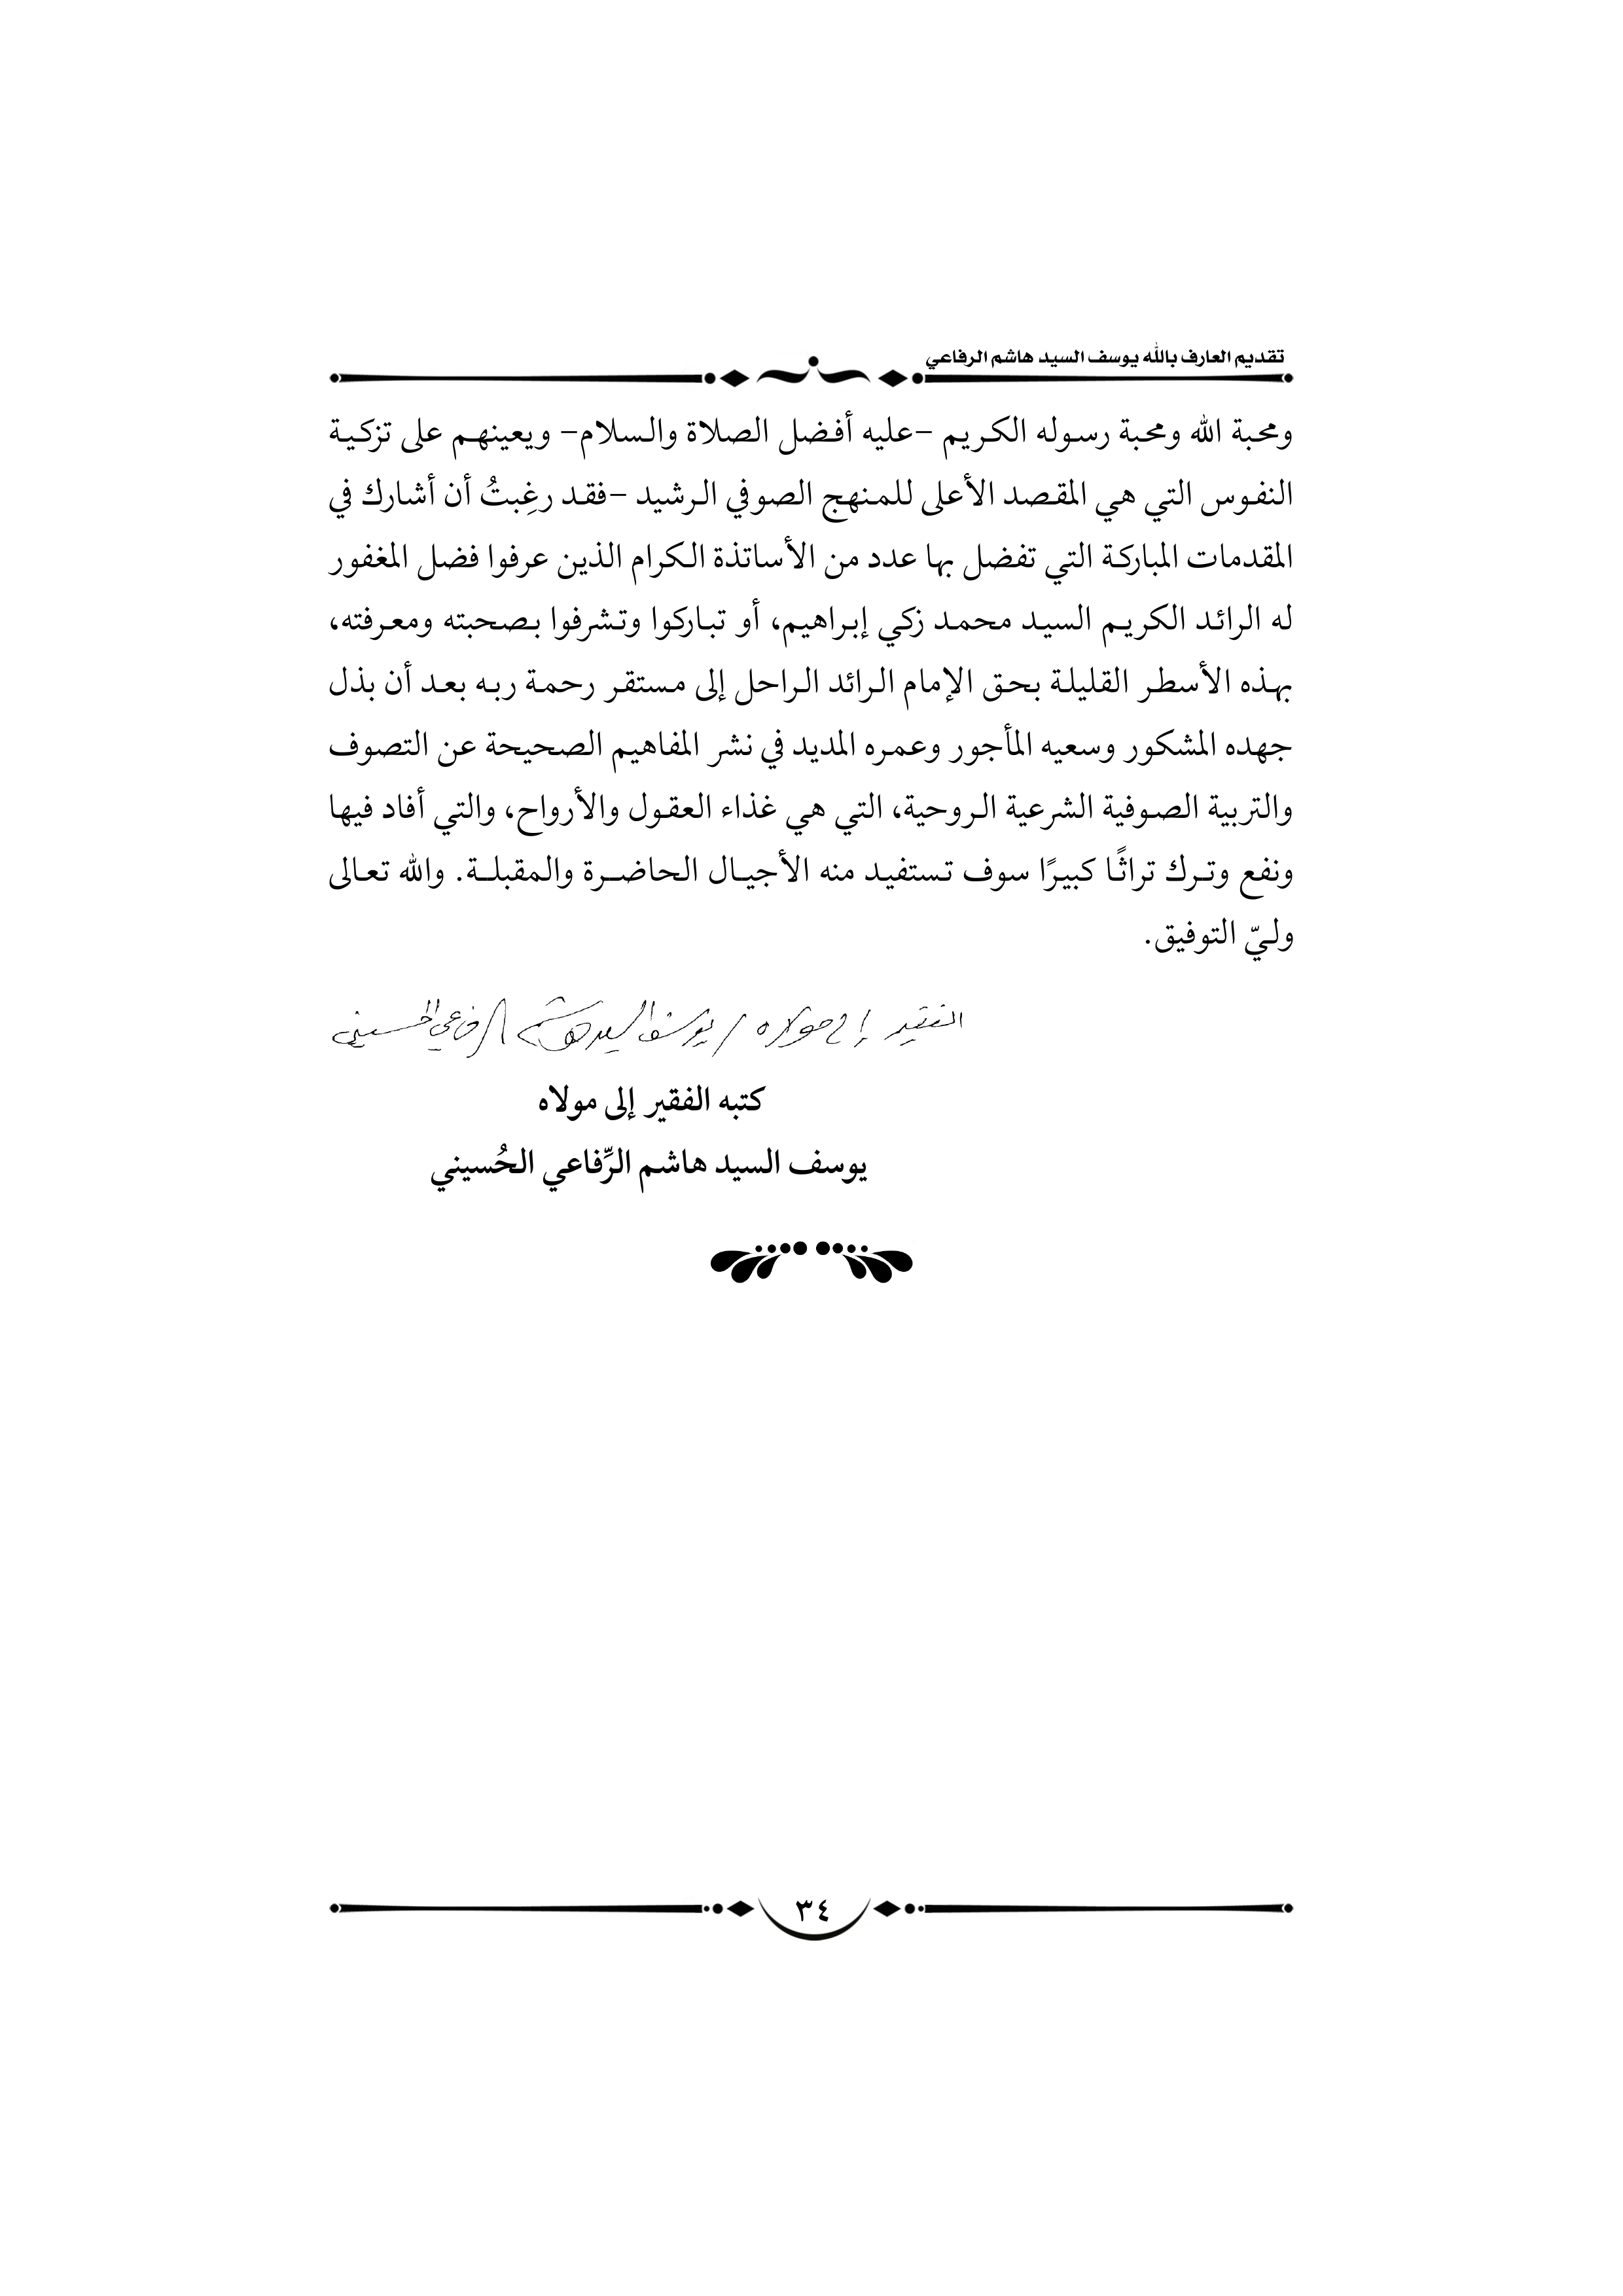 تقديم العارف بالله يوسف السيد هاشم الرفاعي
ومحبة الله ومحبة رسوله الكريم –عليه أفضل الصلاة والسلام– ويعينهم على تزكية
النفوس التي هي المقصد الأعلى للمنهج الصوفي الرشيد –فقد رغِبتُ أن أشارك في
المقدمات المباركة التي تفضل بها عدد من الأساتذة الكرام الذين عرفوا فضل المغفور
له الرائد الكريم السيد محمد زكي إبراهيم، أو تباركوا وتشرفوا بصحبته ومعرفته،
بهذه الأسطر القليلة بحق الإمام الرائد الراحل إلى مستقر رحمة ربه بعد أن بذل
جهده المشكور وسعيه المأجور وعمره المديد في نشر المفاهيم الصحيحة عن التصوف
والتربية الصوفية الشرعية الروحية، التي هي غذاء العقول والأرواح، والتي أفاد فيها
ونفع وترك تراثًا كبيرًا سوف تستفيد منه الأجيال الحاضرة والمقبلة. والله تعالى
وليّ التوفيق.
الفقير إلى مولاه / يوسف السيد هاشم الرفاعي الحسيني
كتبه الفقير إلى مولاه
يوسف السيد هاشم الرِّفاعي الحُسيني
٣٤